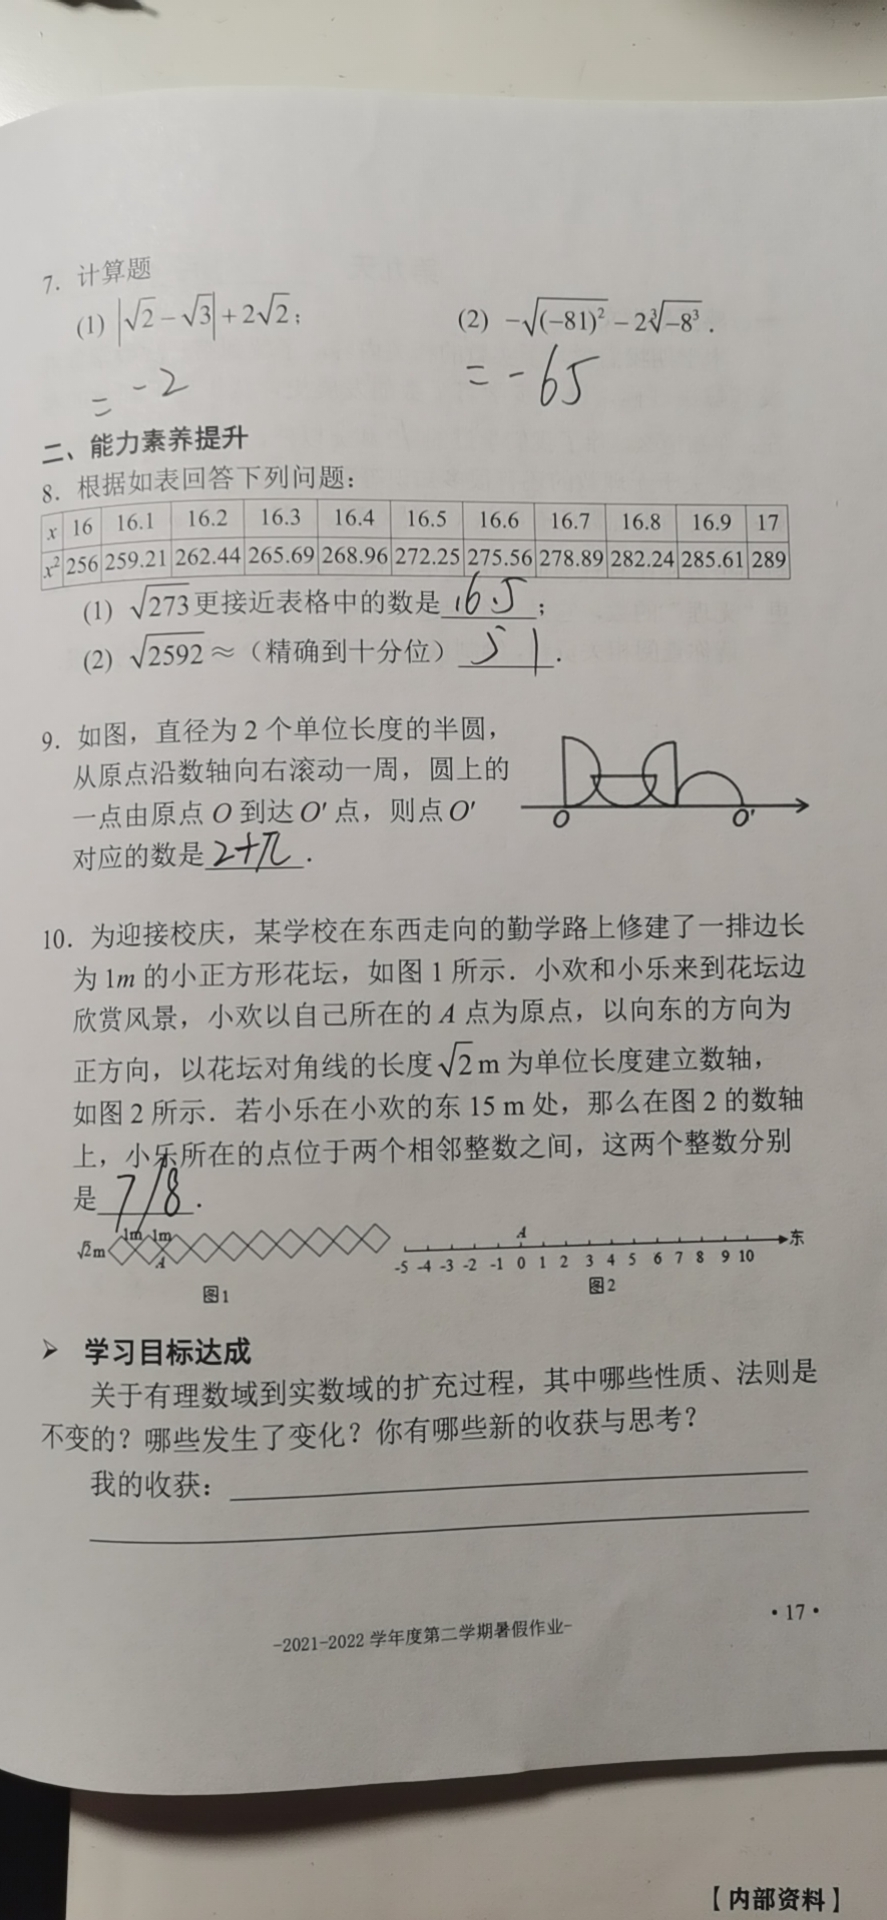 7. 计算题
(1) |√2-√3|+2√2; (2) -√(-81)²-2∛-8³.
= -2 = -65
二、能力素养提升
8. 根据如表回答下列问题:
x 16 16.1 16.2 16.3 16.4 16.5 16.6 16.7 16.8 16.9 17
x² 256 259.21 262.44 265.69 268.96 272.25 275.56 278.89 282.24 285.61 289
(1) √273更接近表格中的数是 16.5 ;
(2) √2592≈(精确到十分位) 51 .
9. 如图,直径为2个单位长度的半圆,
从原点沿数轴向右滚动一周,圆上的
一点由原点O到达O′点,则点O′
对应的数是 2+π .
O O′
10. 为迎接校庆,某学校在东西走向的勤学路上修建了一排边长
为1m的小正方形花坛,如图1所示.小欢和小乐来到花坛边
欣赏风景,小欢以自己所在的A点为原点,以向东的方向为
正方向,以花坛对角线的长度√2m为单位长度建立数轴,
如图2所示.若小乐在小欢的东15 m处,那么在图2的数轴
上,小乐所在的点位于两个相邻整数之间,这两个整数分别
是 7/8 .
1m 1m
√2m A
图1
A 东
-5 -4 -3 -2 -1 0 1 2 3 4 5 6 7 8 9 10
图2
➢ 学习目标达成
关于有理数域到实数域的扩充过程,其中哪些性质、法则是
不变的?哪些发生了变化?你有哪些新的收获与思考?
我的收获:
·17·
-2021-2022学年度第二学期暑假作业-
【内部资料】